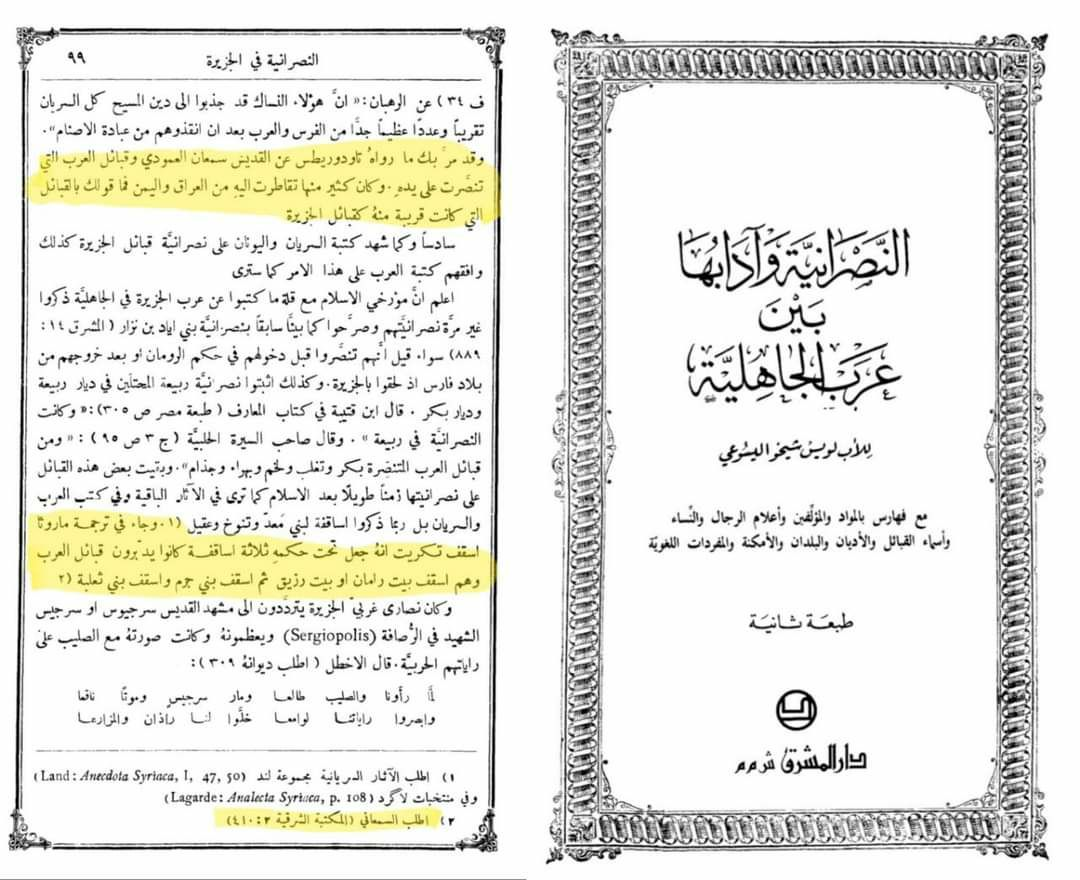 النصرانية في الجزيرة
٩٩
ف ٣٤) عن الرهبان: «انَّ هؤلاء النساك قد جذبوا الى دين المسيح كل السريان
تقريباً وعددًا عظيماً جدًّا من الفرس والعرب بعد ان انقذوهم من عبادة الاصنام».
وقد مرَّ بك ما رواهُ تاودوريطس عن القديس سمعان العمودي وقبائل العرب التي
تنصَّرت على يدهِ. وكان كثير منها تقاطرت اليهِ من العراق واليمن فما قولك بالقبائل
التي كانت قريبة منهُ كقبائل الجزيرة
سادساً وكما شهد كتبة السريان واليونان على نصرانيَّة قبائل الجزيرة كذلك
وافقهم كتبة العرب على هذا الامر كما سترى
اعلم انَّ مؤرخي الاسلام مع قلة ما كتبوا عن عرب الجزيرة في الجاهليَّة ذكروا
غير مرَّة نصرانيَّتهم وصرَّحوا كما بيَّنَّا سابقاً بنصرانيَّة بني اياد بن نزار (المشرق ١٤:
٨٨٩) سواء قيل انَّهم تنصَّروا قبل دخولهم في حكم الرومان او بعد خروجهم من
بلاد فارس اذ لحقوا بالجزيرة. وكذلك اثبتوا نصرانيَّة ربيعة المحتلّين في ديار ربيعة
وديار بكر. قال ابن قتيبة في كتاب المعارف (طبعة مصر ص ٣٠٥): «وكانت
النصرانيَّة في ربيعة». وقال صاحب السيرة الحلبيَّة (ج ٣ ص ٩٥): «ومن
قبائل العرب المتنصّرة بكر وتغلب ولخم وبهراء وجذام». وبقيت بعض هذه القبائل
على نصرانيتها زمناً طويلًا بعد الاسلام كما ترى في الآثار الباقية وفي كتب العرب
والسريان بل ربما ذكروا اساقفة لبني مَعدّ وتنوخ وعقيل (١. وجاء في ترجمة ماروثا
اسقف تكريت انهُ جعل تحت حكمهِ ثلاثة اساقفة كانوا يدبّرون قبائل العرب
وهم اسقف بيت رامان او بيت رزيق ثم اسقف بني جرم واسقف بني ثعلبة (٢
وكان نصارى غربيّ الجزيرة يتردَّدون الى مشهد القديس سرجيوس او سرجيس
الشهيد في الرُّصافة (Sergiopolis) ويعظمونهُ وكانت صورتهُ مع الصليب على
راياتهم الحربيَّة. قال الاخطل (اطلب ديوانهُ ٣٠٩):
لمَّا رأَونا والصليب طالعا ومار سرجيس وموتًا ناقعا
وابصروا راياتنا لوامعا خلَّوا لنا راذان والمزارعا
١) اطلب الآثار السريانية مجموعة لند (Land: Anecdota Syriaca, I, 47, 50)
وفي منتخبات لاگرد (Lagarde: Analecta Syriaca, p. 108)
٢) اطلب السمعاني (المكتبة الشرقية ٢: ٤١٠)
النَّصْرَانِيَّة وَآدَابُهَا
بَيْنَ
عَرَبِ الجَاهِلِيَّة
للأب لويس شيخو اليسوعي
مع فهارس بالمواد والمؤلّفين وأعلام الرجال والنّساء
وأسماء القبائل والأديان والبلدان والأمكنة والمفردات اللغويّة
طبعة ثانية
دار المشرق ش م م